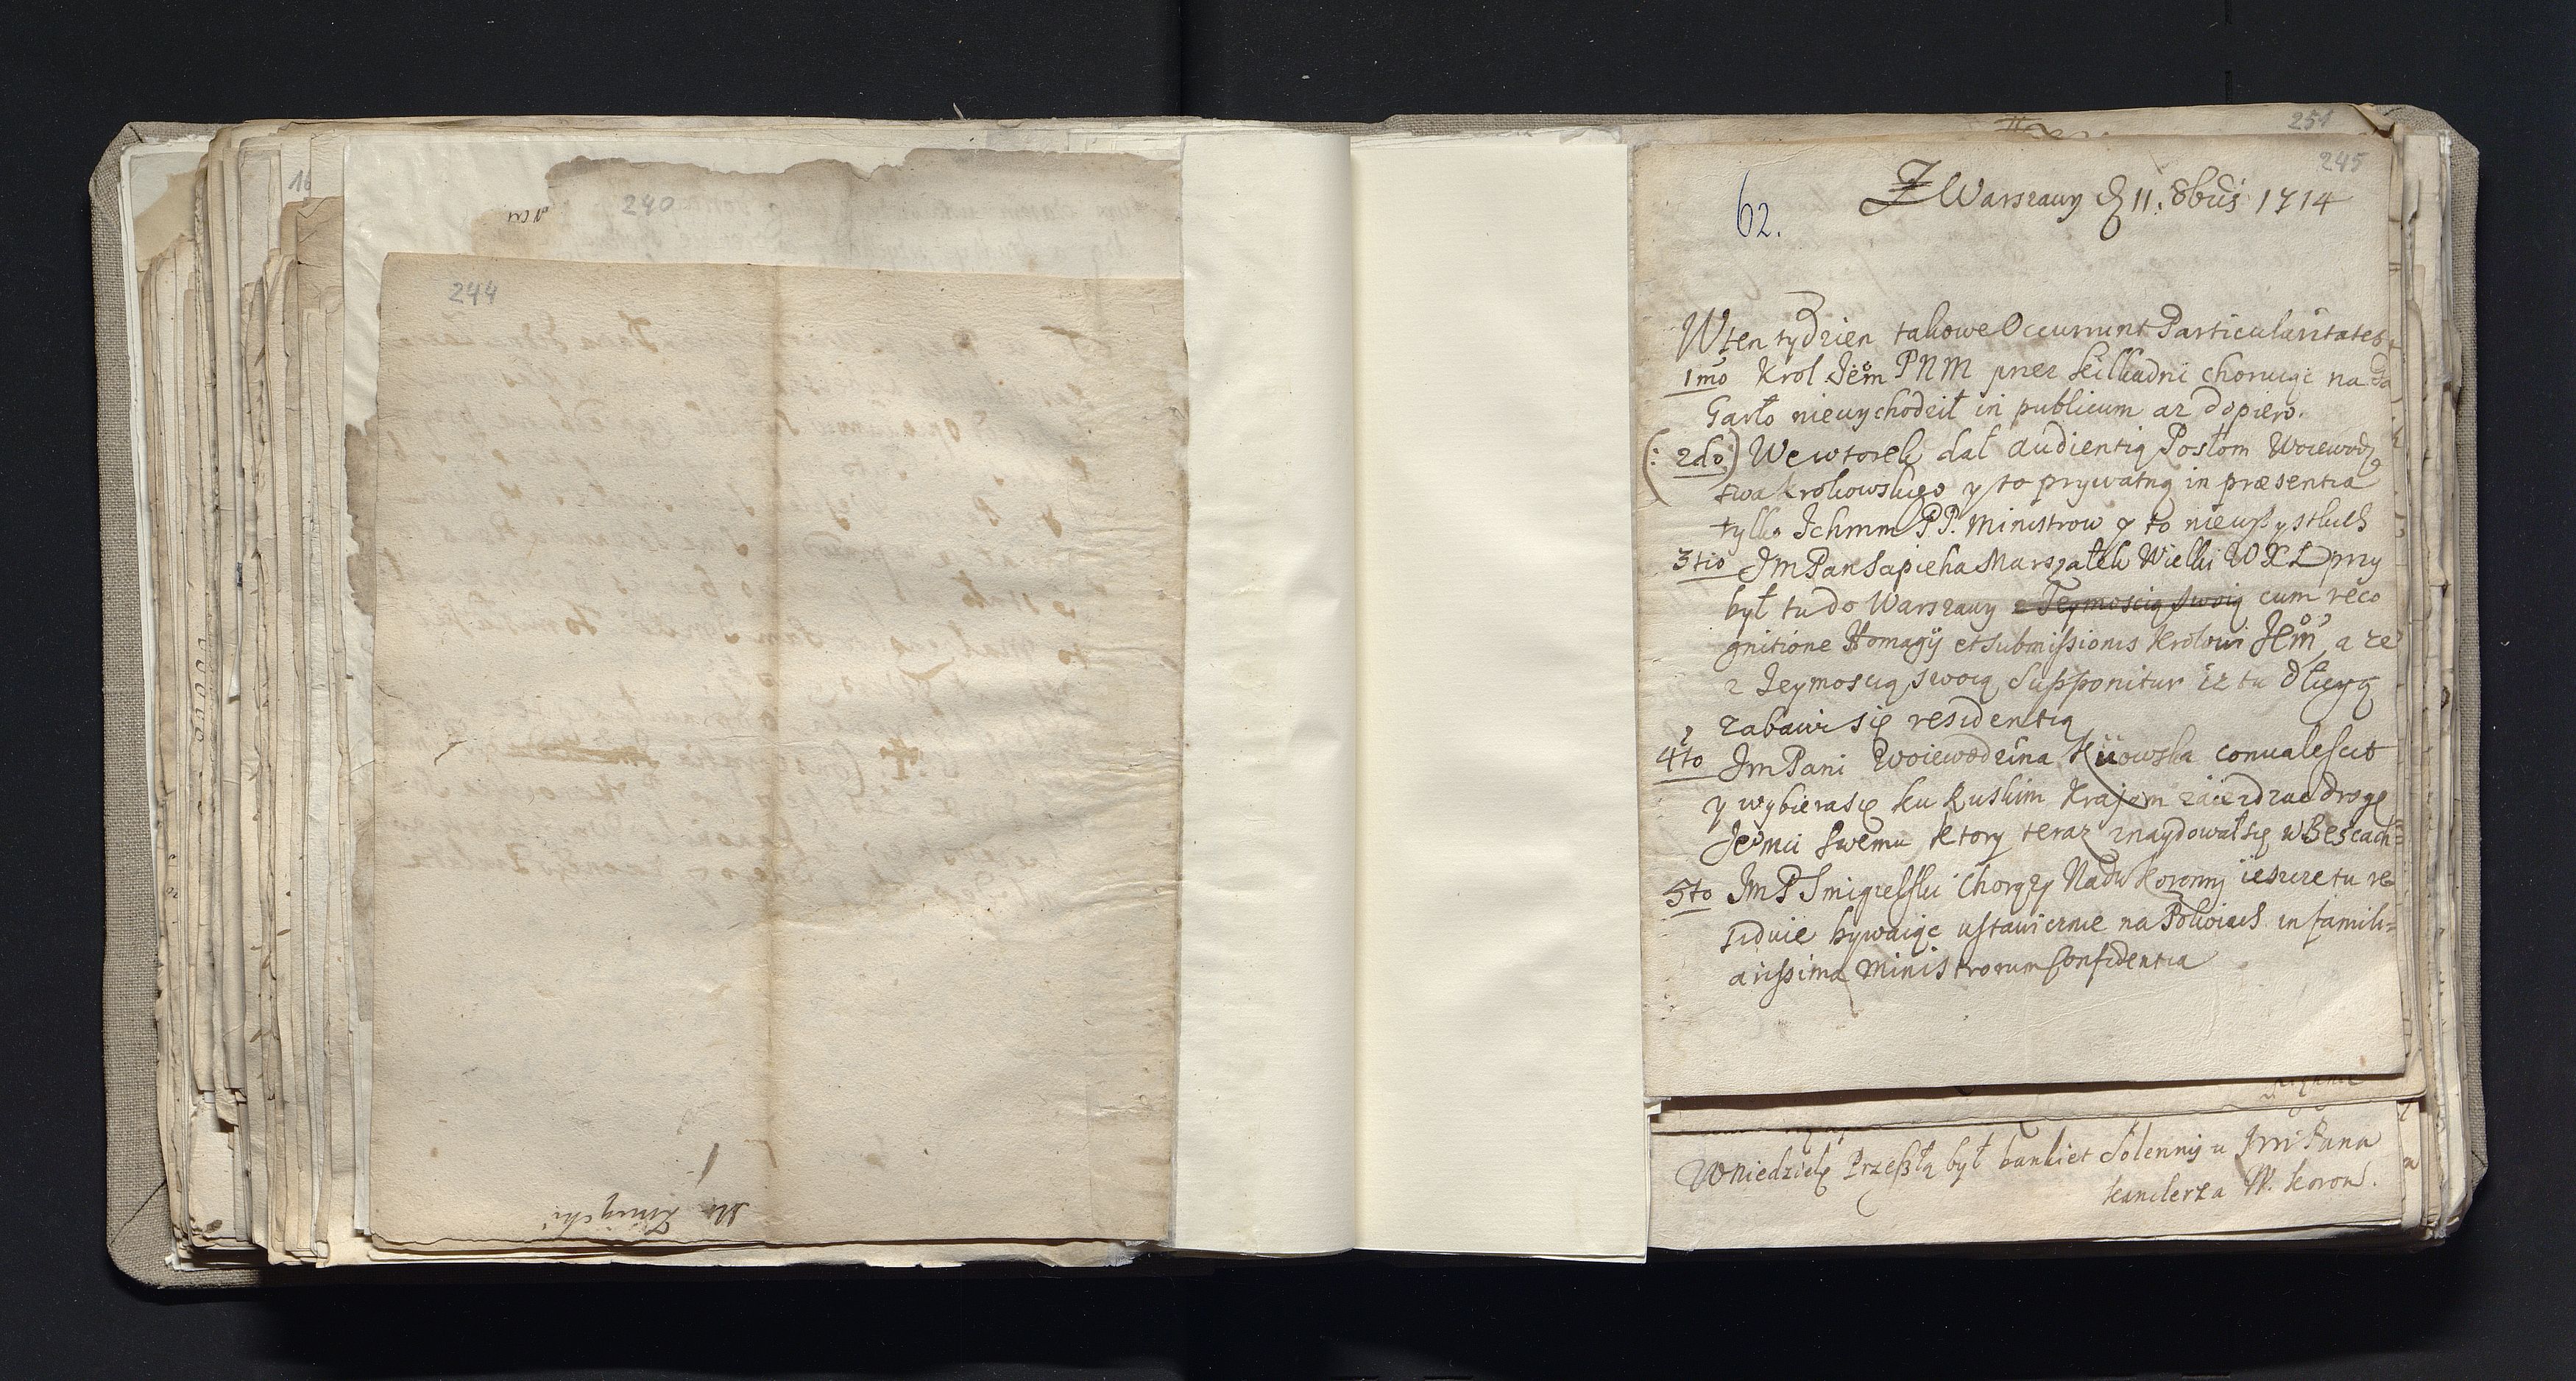 240
244
251
245
62.
Z Warszawy d 11. 8bris 1714
W ten tydzien takowe Occurrunt Particularitates
1mo Krol Jem PNM przez kilkadni choruiąc na
Garło niewychodził in publicum az dopiero.
(: 2do) We wtorek dał audientią Posłom Woiewodz
twa Krakowskiego y to prywatną in præsentia
tylko Ichmm PP. Ministrow y to niewszystkich
3tio Jm Pan Sapieha Marszałek Wielki WXL przy
był tu do Warszawy z Jeymoscią swoią cum reco
gnitione Homagij et submissionis Krolowi Jem, a ze
z Jeymoscią swoią supponitur iz tu dłuzszą
zabawi się residentią
4to Jm Pani Woiewodzina Kijowska convalescit
y wybiera się ku Ruskim Krajom zaiezdzac drogę
Jemci swemu ktory teraz znaydował się w Bescach
5to Jm P Smigielski Chorązy Nadw Koronny ieszcze tu re
siduie bywaiąc ustawicznie na Pokoiach in famili=
arissima Ministrorum Confidentia
W Niedzielę Przeszłą był bankiet Solenny u Jm Pana
Kanclerza W. Koron.